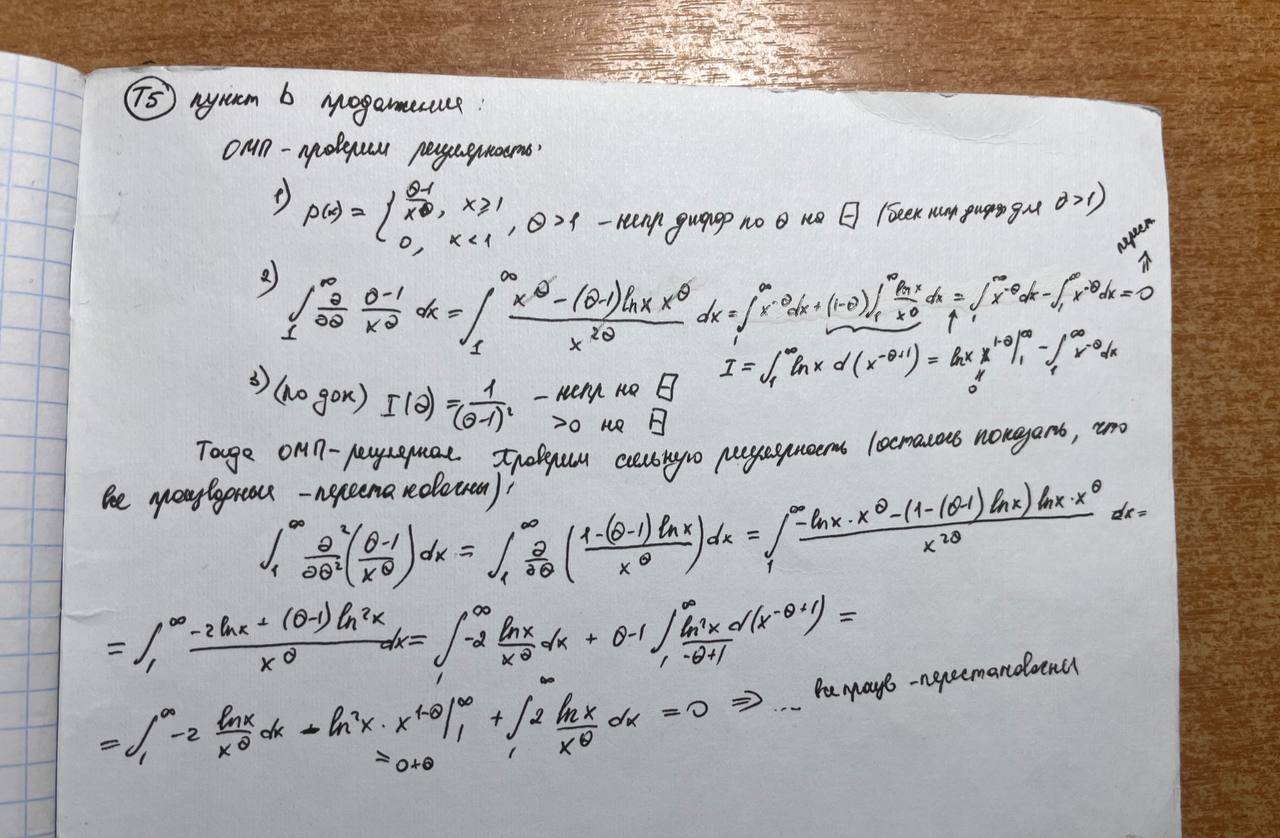 T5 пункт b продолжение:
ОМП - проверим регулярность:
1) p(x) = { (θ-1)/x^θ, x ≥ 1; 0, x < 1 , θ > 1 - непр дифф по θ на Θ (беск непр дифф для θ > 1)
2) ∫_1^∞ ∂/∂θ (θ-1)/x^θ dx = ∫_1^∞ (x^θ - (θ-1) ln x x^θ)/x^{2θ} dx = ∫_1^∞ x^{-θ} dx + (1-θ) ∫_1^∞ ln x/x^θ dx = ∫_1^∞ x^{-θ} dx - ∫_1^∞ x^{-θ} dx = 0 ⇒ перест
I = ∫_1^∞ ln x d(x^{-θ+1}) = ln x x^{1-θ} |_1^∞ - ∫_1^∞ x^{-θ} dx
0
3) (по док) I(θ) = 1/(θ-1)^2 - непр на Θ
>0 на Θ
Тогда ОМП - регулярная. Проверим сильную регулярность (осталось показать, что
все производные - перестановочны):
∫_1^∞ ∂²/∂θ² ((θ-1)/x^θ) dx = ∫_1^∞ ∂/∂θ ((1-(θ-1) ln x)/x^θ) dx = ∫_1^∞ (-ln x · x^θ - (1-(θ-1) ln x) ln x · x^θ)/x^{2θ} dx =
= ∫_1^∞ (-2 ln x + (θ-1) ln²x)/x^θ dx = ∫_1^∞ -2 ln x/x^θ dx + θ-1 ∫_1^∞ ln²x/(-θ+1) d(x^{-θ+1}) =
= ∫_1^∞ -2 ln x/x^θ dx - ln²x · x^{1-θ} |_1^∞ + ∫_1^∞ 2 ln x/x^θ dx = 0 ⇒ ... все произв - перестановочны
= 0+0